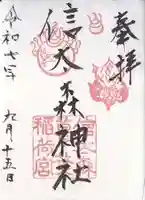 奉拝
信太森神社
令和七年
九月十五日
稲荷宮